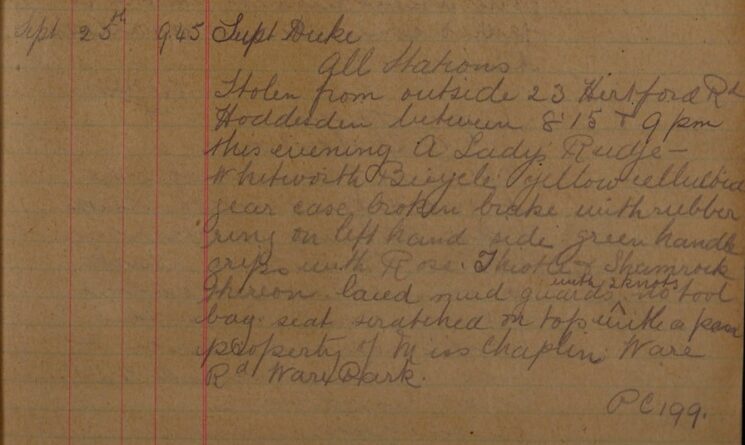 Sept 25th 9.45 Supt Duke
All Stations
Stolen from outside 23 Hertford Rd
Hoddesden between 8.15 & 9 pm
this evening A Lady's Rudge-
Whitworth Bicycle, yellow celluloid
gear case, broken brake with rubber
ring on left hand side green handle
grips with Rose. Thistle & Shamrock
thereon laced mud guards with 2 knots, no tool
bag. seat scratched on top with a pin
property of Miss Chaplin Ware
Rd Ware Park.
PC 199.